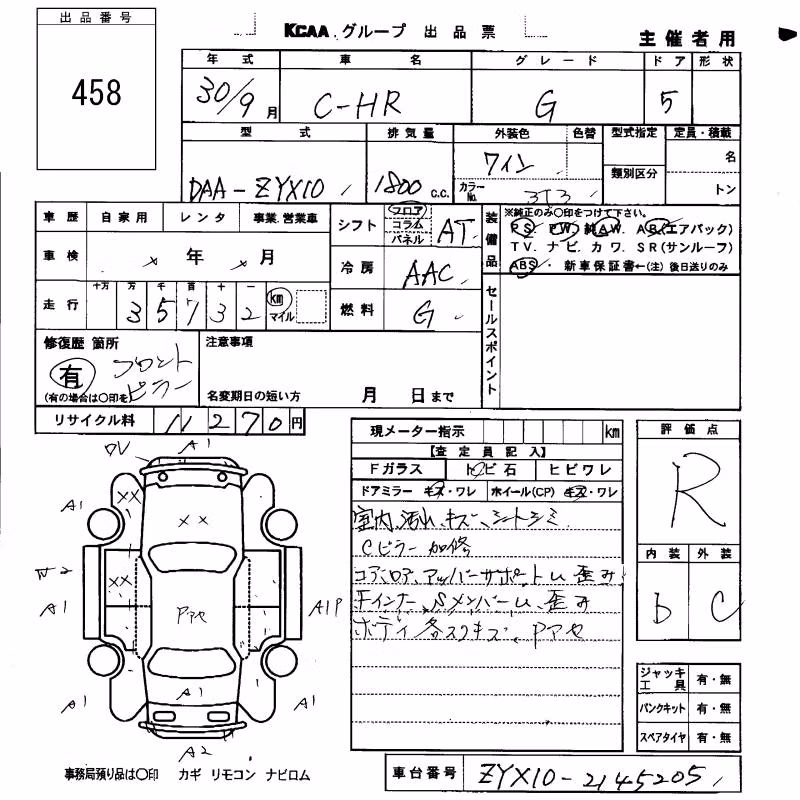 出品番号
458
KCAA グループ 出品票
主催者用
年式 車名 グレード ドア 形状
30/9月 C-HR G 5
型式 排気量 外装色 色替 型式指定 定員・積載
DAA-ZYX10 1800 c.c. ワイン 名
類別区分
カラーNo. 3T3 トン
車歴 自家用 レンタ 事業.営業車
シフト フロア コラム パネル AT
装備品
※純正のみ〇印をつけて下さい。
PS. PW. 純AW. AB(エアバック)
TV. ナビ. カワ. SR(サンルーフ)
ABS 新車保証書←(注)後日送りのみ
車検 × 年 × 月
冷房 AAC
走行 十万 万 千 百 十 一
3 5 7 3 2 km マイル
燃料 G
セールスポイント
修復歴 箇所
有 フロントピラー
(有の場合は〇印を)
注意事項
名変期日の短い方 月 日まで
リサイクル料 11270円
現メーター指示 km
【査定員記入】
Fガラス トビ石 ヒビワレ
ドアミラー キズ・ワレ ホイール(CP) キズ・ワレ
室内汚れ、キズ、シートシミ
Cピラー加修
コア、ロア、アッパーサポートU、歪み
FインナーSメンバーU、歪み
ボディ各スリキズ、Pアセ
評価点
R
内装 外装
b C
A1
A1
××
××
××
A1
A1
A1P
Pアセ
A1
A1
A1
A2
ジャッキ工具 有・無
パンクキット 有・無
スペアタイヤ 有・無
事務局預り品は〇印 カギ リモコン ナビロム
車台番号 ZYX10-2145205